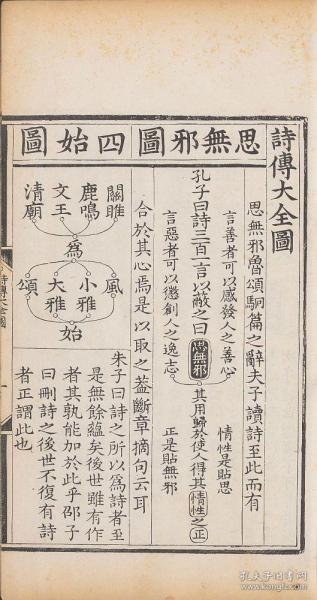 詩傳大全圖
思無邪圖
思無邪魯頌駉篇之辭夫子讀詩至此而有
言善者可以感發人之善心
孔子曰詩三百一言以蔽之曰
思無邪
言惡者可以懲創人之逸志
情性是貼思
其用歸於使人得其情性之正
正是貼無邪
合於其心焉是以取之葢斷章摘句云耳
四始圖
關雎
鹿鳴
文王
清廟
為
風
小雅
大雅
頌
始
朱子曰詩之所以為詩者至
是無餘蘊矣後世雖有作
者其孰能加於此乎邵子
曰刪詩之後世不復有詩
者正謂此也
詩傳大全圖
孔夫子旧书网